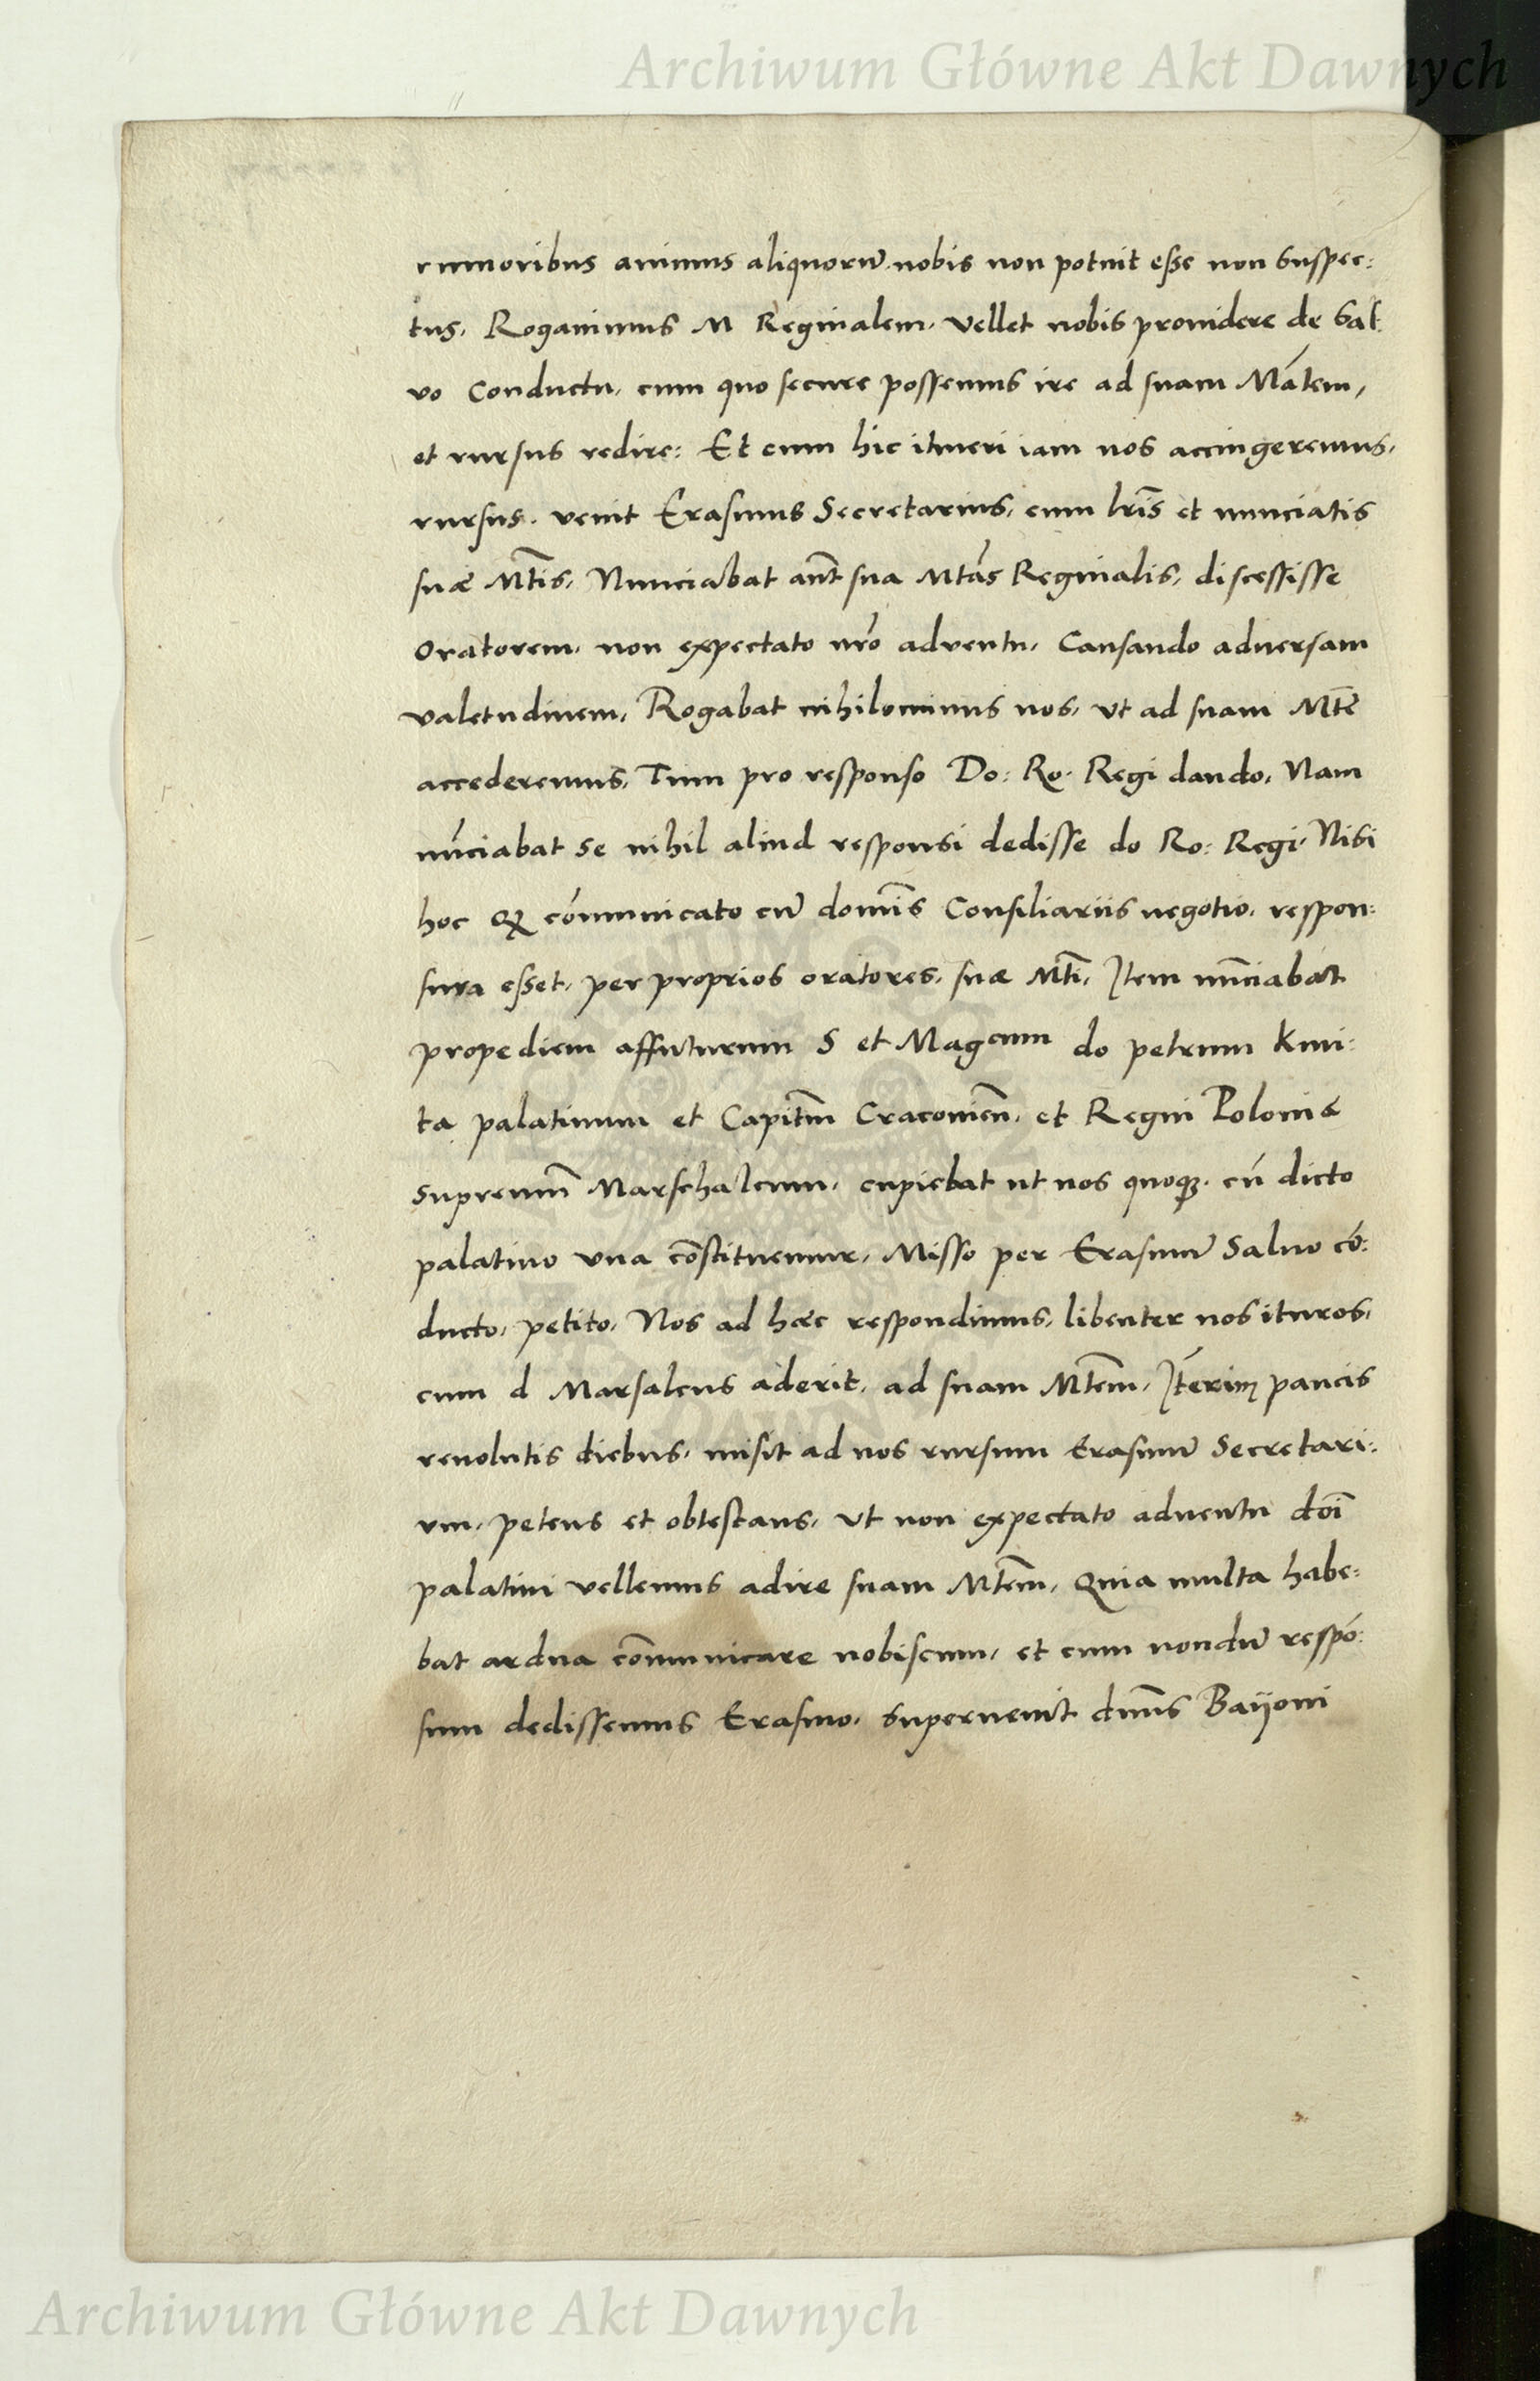 Archiwum Główne Akt Dawnych
rumoribus animus aliquorũ nobis non potuit esse non suspec:
tus, Rogauimus M Reginalem, vellet nobis prouidere de sal:
vo Conductu, cum quo secure possemus ire ad suam Mãtem,
et rursus redire: Et cum hic itineri iam nos accingeremus,
rursus, venit Erasmus Secretarius, cum lr̃is et nunciatis
suæ Mt̃is, Nunciabat aũt sua Mtãs Reginalis, discessisse
Oratorem, non expectato nr̃o adventu, Causando aduersam
valetudinem, Rogabat nihilominus nos, vt ad suam Mtẽ
accederemus, Tum pro responso Do: Ro. Regi dando, Nam
nũciabat se nihil aliud responsi dedisse do Ro: Regi, Nisi
hoc ꝙ cõmunicato cũ domĩs Consiliariis negotio, respon:
sura esset, per proprios oratores, suæ Mt̃i, Item nũciabat
propediem affuturum S et Magcum do petrum kmi:
ta palatinum et Capitm̃ Cracouien̄, et Regni Poloniæ
Supremum̃ Marschalcum, cupiebat ut nos quoqꝫ, cũ dicto
palatino vna cõstitueremur, Misso per Erasmũ Saluo cõ:
ducto, petito, Nos ad hæc respondimus, libenter nos ituros,
cum d Marsalcus aderit, ad suam Mtem̃, Iñterim paucis
reuolutis diebus, misit ad nos rursum Erasmũ Secretari:
vm, petens et obtestans, vt non expectato aduentu doĩ
palatini vellemus adire suam Mtem̃, Quia multa habe:
bat ardua com̃municare nobiscum, et cum nondũ respõ:
sum dedissemus Erasmo, superuenit dnũs Baÿoni
Archiwum Główne Akt Dawnych